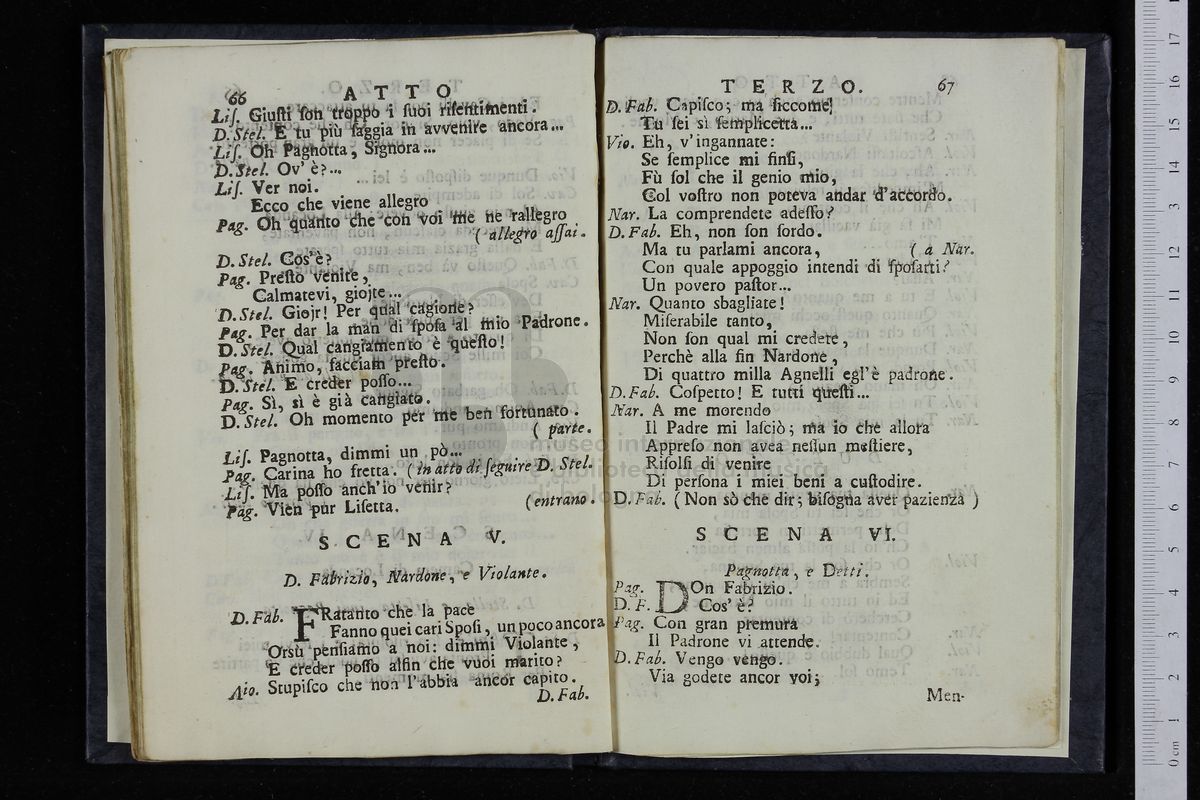 66
ATTO
Liſ. Giuſti ſon troppo i ſuoi riſentimenti.
D. Stel. E tu più ſaggia in avvenire ancora...
Liſ. Oh Pagnotta, Signora...
D. Stel. Ov' è?...
Liſ. Ver noi.
Ecco che viene allegro
Pag. Oh quanto che con voi me ne rallegro
( allegro aſſai.
D. Stel. Cos'è?
Pag. Preſto venite,
Calmatevi, giojte...
D. Stel. Giojr! Per qual cagione?
Pag. Per dar la man di ſpoſa al mio Padrone.
D. Stel. Qual cangiamento è queſto!
Pag. Animo, facciam preſto.
D. Stel. E creder poſſo...
Pag. Sì, sì è già cangiato.
D. Stel. Oh momento per me ben fortunato.
( parte.
Liſ. Pagnotta, dimmi un pò...
Pag. Carina ho fretta. (in atto di ſeguire D. Stel.
Liſ. Ma poſſo anch'io venir?
Pag. Vien pur Liſetta. (entrano.
SCENA V.
D. Fabrizio, Nardone, e Violante.
D. Fab. FRatanto che la pace
Fanno quei cari Spoſi, un poco ancora
Orsù penſiamo a noi: dimmi Violante,
E creder poſſo alfin che vuoi marito?
Aio. Stupiſco che non l'abbia ancor capito.
D. Fab.
TERZO. 67
D. Fab. Capiſco; ma ſiccome
Tu ſei sì ſemplicetta...
Vio. Eh, v'ingannate:
Se ſemplice mi finſi,
Fù ſol che il genio mio,
Col voſtro non poteva andar d'accordo.
Nar. La comprendete adeſſo?
D. Fab. Eh, non ſon ſordo.
Ma tu parlami ancora, ( a Nar.
Con quale appoggio intendi di ſpoſarti?
Un povero paſtor...
Nar. Quanto sbagliate!
Miſerabile tanto,
Non ſon qual mi credete,
Perchè alla fin Nardone,
Di quattro milla Agnelli egl'è padrone.
D. Fab. Coſpetto! E tutti queſti...
Nar. A me morendo
Il Padre mi laſciò; ma io che allora
Appreſo non avea neſſun meſtiere,
Riſolſi di venire
Di perſona i miei beni a cuſtodire.
D. Fab. (Non sò che dir; biſogna aver pazienza )
SCENA VI.
Pagnotta, e Detti.
Pag. DOn Fabrizio.
D. F. Cos' è?
Pag. Con gran premura
Il Padrone vi attende.
D. Fab. Vengo vengo.
Via godete ancor voi;
Men-
museo internazionale
e biblioteca della musica
17
16
15
14
13
12
11
10
9
8
7
6
5
4
3
2
1
0 cm